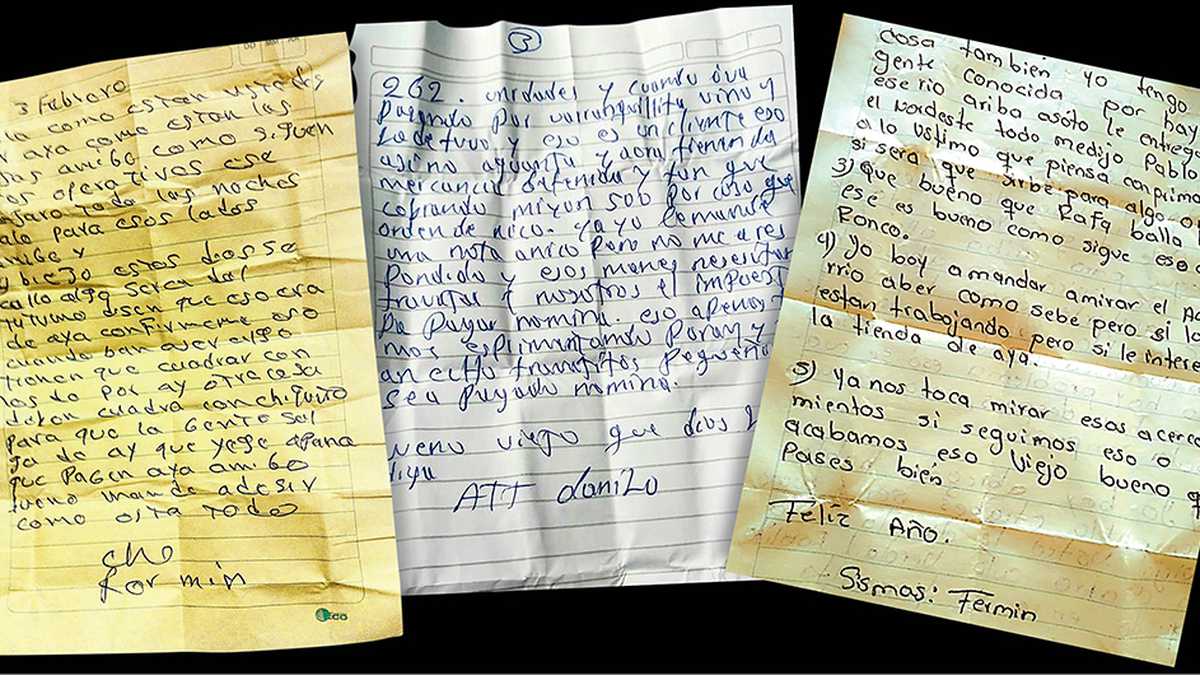 3 Febrero
como estan ustedes
aya como estan las
amigo como siguen
os operativos ese
todo las noches
para esos lados
y
biejo estos dos se
callo algo serca del
tutumo disen que eso era
de aya confirmeme eso
cuando ban aser algo
tienen que cuadrar con
por ay otra cosa
cuadra con chiquito
para que la Gente sal
ga de ay que yege apana
que Pagen aya amigo
bueno mande adesir
como esta todo
cho
Fermin
eco
3
262. unidades y cuando iva
pasando por varranquillita vino y
lo detuvo y eso es un cliente eso
asi no aguanta y aora tienen la
mercancia detenida y tan que
cofrando miyon 500 por cosa que
orden de nico. ya yo le mande
una nota a nico pero no me a res
pondido y esos manes nesesitan
travitar y nosotros el impuest
pa pagar nomina. eso apenas
mos
an echo travajitos pequeño
sea pagado nomina.
ueno viejo que dios
ATT daniLo
cosa tambien yo tengo
gente conocida por hay
ese rio ariba asoto le entrego
el nordeste todo medijo Pablo
a lo ustimo que piensa conprimo
si sera que sirbe para algo o
3) que bueno que Rafa balla
ese es bueno como sigue eso
Ronco.
4) Yo boy amandar amirar el
rrio aber como sebe pero si lo
estan trabajando pero si le intere
la tienda de aya.
5) Ya nos toca mirar esas acerca
mientos si seguimos eso o
acabamos eso Viejo bueno q
Pases bien
Feliz Año.
Sismas: Fermin